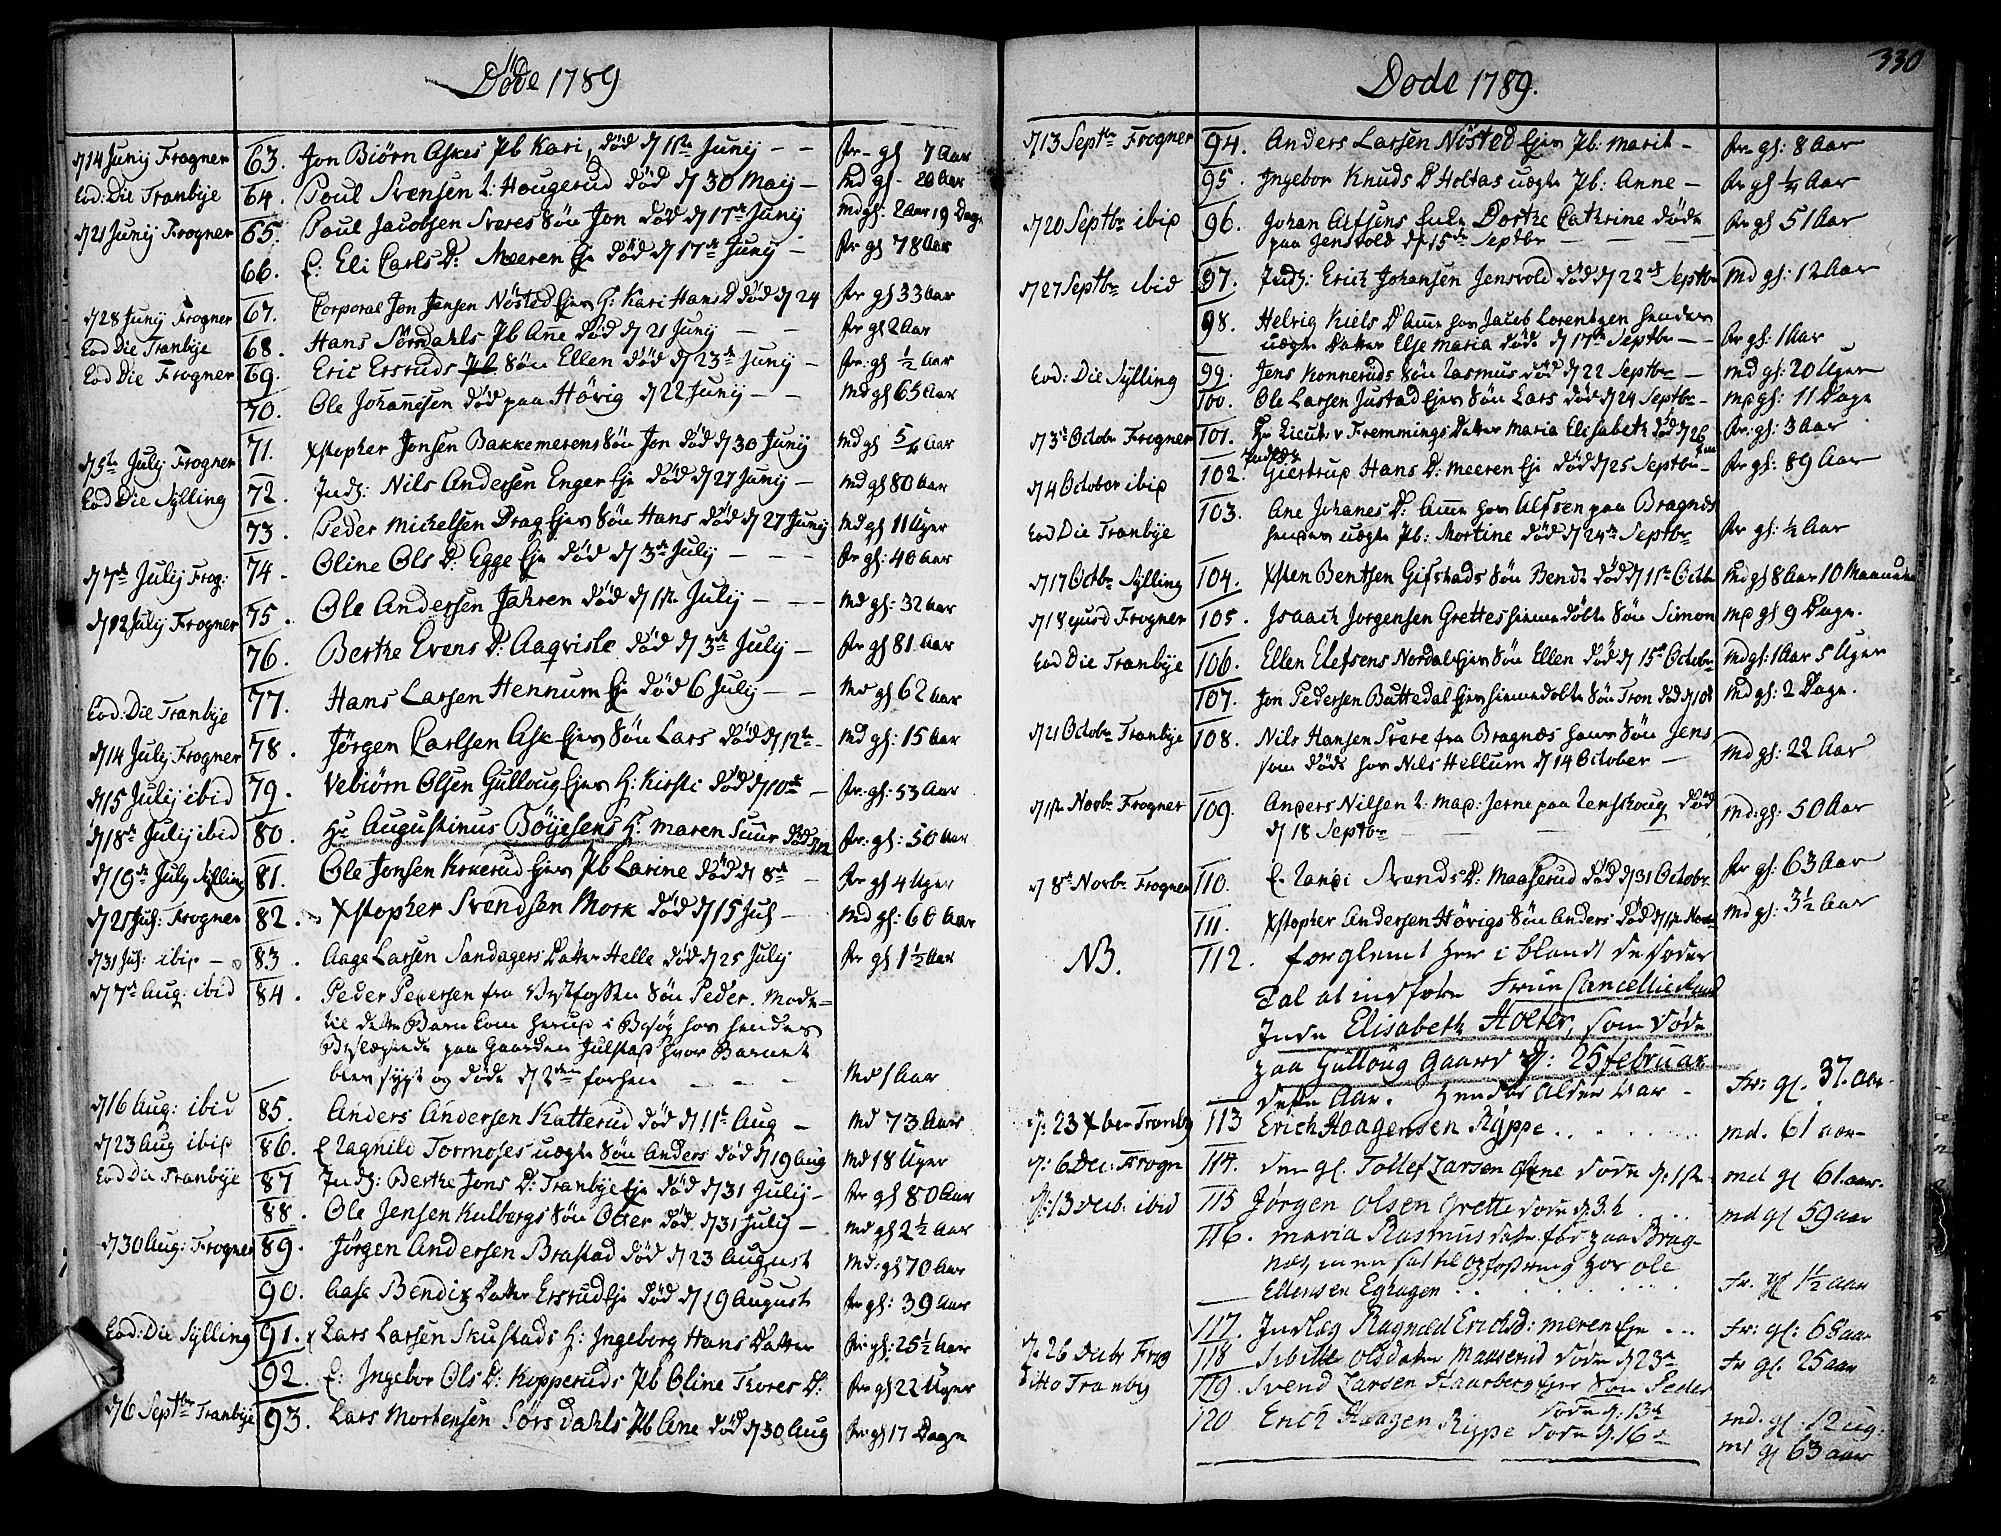 Döde 1789
d 14 Junij Frogner 63. Jon Biörn Askes Pb Kari, död d 11te Junij - - Qv gl 7 Aar
Eod: Die Tranbye 64. Poul Svensen Hougerud död d 30 May - Md gl - 20 Aar
d 21 Junij Frogner 65. Poul Jacobsen Sveres Sön Jon död d 17de Junij Md gl: 2 Aar 19 Dage
66. E: Eli Carls D: Meeren Eje död d 17de Junij - Qv gl 78 Aar
d 28 Junij Frogner 67. Corporal Jon Jensen Nösted Ejes H: Kari Hans D död d 24 Qv gl 33 Aar
Eod Die Tranbye 68. Hans Sörsdahls Pb Ane död d 21 Junij - - Qv gl 2 Aar
Eod Die Frogner 69. Eric Ersruds Sön Ellen död d 23de Junij - Qv: gl ½ Aar
70. Ole Johannesen död paa Hövig d 22 Junij - - Md gl 65 Aar
d 5te July Frogner 71. Xstopher Jonsen Bakkemerens Sön Jon död d 30 Junij Md gl 5/4 Aar
Eod Die Sylling 72. Inds: Nils Andersen Enger Eje död d 27 Junij - Md gl 80 Aar
73. Peder Mickelsen Drag Ejes Sön Hans död d 27 Junij Md gl 11 Uger
d 7de Julij Frog: 74. Oline Ols D: Egge Eje död d 3de July - - - Qv gl: 40 Aar
d 12 Julij Frogner 75. Ole Andersen Jahren död d 11te July - - - Md gl: 32 Aar
76. Berthe Evens D: Aaqvisle död d 3de July - Qv gl 81 Aar
Eod: Die Tranbye 77. Hans Larsen Hennum Eje död 6 July - - Md gl 62 Aar
d 14 July Frogner 78. Jörgen Carlsen Ask Ejes Sön Lars död d 12te - Md gl: 15 Aar
d 15 Julij ibid 79. Vebiörn Olsen Gulloug Ejes H: Kirsti död d 10de - Qv: gl: 53 Aar
d 18de Julij ibid 80. Hr Augustinus Böyesens H: Maren Suur död Qv: gl: 50 Aar
d 19de July Sylling 81. Ole Jonsen Ejes Pb Larine död d 8de - Qv gl 4 Uger
d 21 Jul: Frogner 82. Xstopher Svendsen Mork död d 15 Jul - Md gl: 60 Aar
d 31 Jul: ibid - 83. Aage Larsen Sandagers Datter Helle död d 25 July Qv gl 1½ Aar
d 7de Aug: ibid 84. Peder Pedersen fra Vestfossen Sön Peder. Mode-
til dette Barn kom herud i Besög hos hendes
Beslægtede paa Gaarden Julstad hvor Barnet
blev sygt og döde d 2den forhen - - - Md 1 Aar
d 16 Aug: ibid 85. Anders Andersen Katterud död d 11te Aug - Md 73 Aar
d 23 Aug ibid 86. E Ragnild Tormoses uægte Sön Anders död d 19 Aug Md 18 Uger
Eod Die Tranbye 87 Inds: Berthe Jons D: Tranbye Eje död d 31 Julij - Qv gl 80 Aar
88. Ole Jensen Kulbergs Sön Otter död d 31 July - Md gl 2½ Aar
d 30 Aug: Frogner 89. Jörgen Andersen Brastad död d 23 August Md: gl 70 Aar
90. Aase Bendix Datter Ersrud Eje död d 19 August Qv gl: 39 Aar
Eod: Die Sylling 91. Lars Larsen Skustads H: Ingeborg Hans Datter Qv gl: 25½ Aar
92. E: Ingebor Ols D: Kopperuds Pb Oline Thores D: Qv gl 22 Uger
d 6 Septbr Tranbye 93. Lars Mortensen Sörsdahls Pb Ane död d 30 Aug Qv: gl 17 Dage
330
Döde 1789.
d 13 Septbr Frogner 94. Anders Larsen Nösted Ejes Pb: Marit - Qv gl: 8 Aar
95. Ingebor Knuds D Holtas uægte Pb: Anne - Qv gl ¼ Aar
d 20 Septbr ibid 96. Johan Alfsens Enke Dorthe Cathrine döde
paa Jensvold d 15de Septbr - - - Qv gl 51 Aar
d 27 Septbr ibid 97. Inds: Erich Johansen Jensvold död d 22de Septbr Md gl: 12 Aar
98. Helvig Kiels D Amme hos Jacob Lorentzen hendes
uægte Datter Else Maria döde d 17de Septbr - Qv gl: 1 Aar
Eod: Die Sylling 99. Jens Konneruds Sön Rasmus död d 22 Septbr - Md gl: 20 Uger
100. Ole Larsen Justad Ejes Sön Lars död d 24 Septbr - Md gl: 11 Dage
d 3de Octobr Frogner 101. Hr Lieut: v Fremmings Datter Maria Elisabeth död d 26 Qv: gl: 3 Aar
d 4 October ibid 102. Indlæg Giertrud Hans D: Meeren Eje död d 25 Septbr Qv gl: 89 Aar
Eod Die Tranbye 103. Ane Johanes D: Amme hos Alfsen paa Bragnæs
hendes uægte Pb: Mortine död d 24de Septbr Qv gl: ½ Aar
d 17 Octbr Sylling 104. Xsten Bentsen Gifstads Sön Bendt död d 11te Octbr Md gl 8 Aar 10 Maaneder
d 18 ejusd Frogner 105. Isaach Jorgensen Grettes hiemedöbte Sön Simon Md gl 9 Dage.
Eod Die Tranbye 106. Ellen Elefsens Nordal Ejes Sön Ellen död d 15de Octobr Md gl: 1 Aar 5 Uger
107. Jon Pedersen Buttedal Ejes hiemedöbte Sön Tron död d 10de Md gl: 2 Dage.
d 21 Octobr Tranbye 108. Nils Hansen Svere fra Bragnæs hans Sön Jens
som döde hos Nils Hellum d 14 October - Md gl: 22 Aar
d 1te Novbr Frogner 109. Anders Nilsen paa död
d 18 Septbr - - - Md: gl: 50 Aar
d 8de Novbr Frogner 110. E. Randi Svends D: Maaserud död d 31 Octobr Qv gl: 63 Aar
111. Xstopher Andersen Hövigs Sön Anders död d 1te Novbr Md gl: 3½ Aar
NB. 112. forglemt her i blandt de Dödes
Tal at indföre Fruu Cancellieraad
Elisabeth Holter, som döde
paa Gulloug Gaard d: 25 Februar
dette Aar. Hendes Alder var - Fr: gl. 37. Aar.
d: 23 9ber Tranby 113 Erich Haagensen Rÿppe . . . . md. 61 aar -
d: 6 Dec: Frogn 114. Den gl. Tollef Larsen döde d: 1te md gl 61. aar.
d: 13 Decb. ibid 115 Jörgen Olsen Grette döde d 3. . . . md gl 59 aar
116. Maria Rasmus datter för paa Brag-
næs, men sat til Opfostring hos Ole
Ellensen Eghagen . . . . Fr. gl 1½ aar
117. Indlæg Ragnild Erichsd: Meren Eje ... Fr: gl: 68 aar
d. 26 Decbr Frog 118 Sibille Olsdatter Maaserud döde d 23de Fr gl. 25 aar
Ditto Tranby 119. Svend Larsen Haarberg Ejes Sön Peder
döde d. 13de md. gl. 12 ug:
120 Erich Haagen Rippe döde d. 16de md gl 63 aar